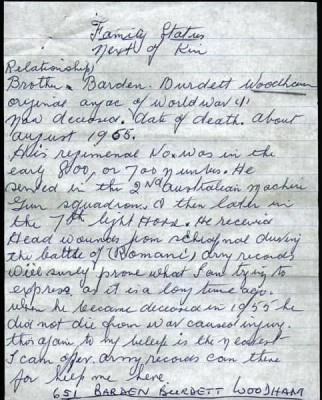 Family Status
Next of Kin
Relationship)
Brother. Barden. Burdett Woodham
original anzac of world war 1
now deceased. date of death. about
august 1955.
His regimental No. was in the
early 800, or 700 numbers. He
served in the 2nd Australian machine
Gun squadron, & then later in
the 7th light Horse. He received
Head wounds from schrapnal during
the battle of (Romani) army records
will surely prove what I am trying to
express as it is a long time ago.
when he became deceased in 1955 he
did not die from war caused injury.
this again to my belief is the nearest
I can offer. army records can there
for help me here
651 BARDEN BURDETT WOODHAM